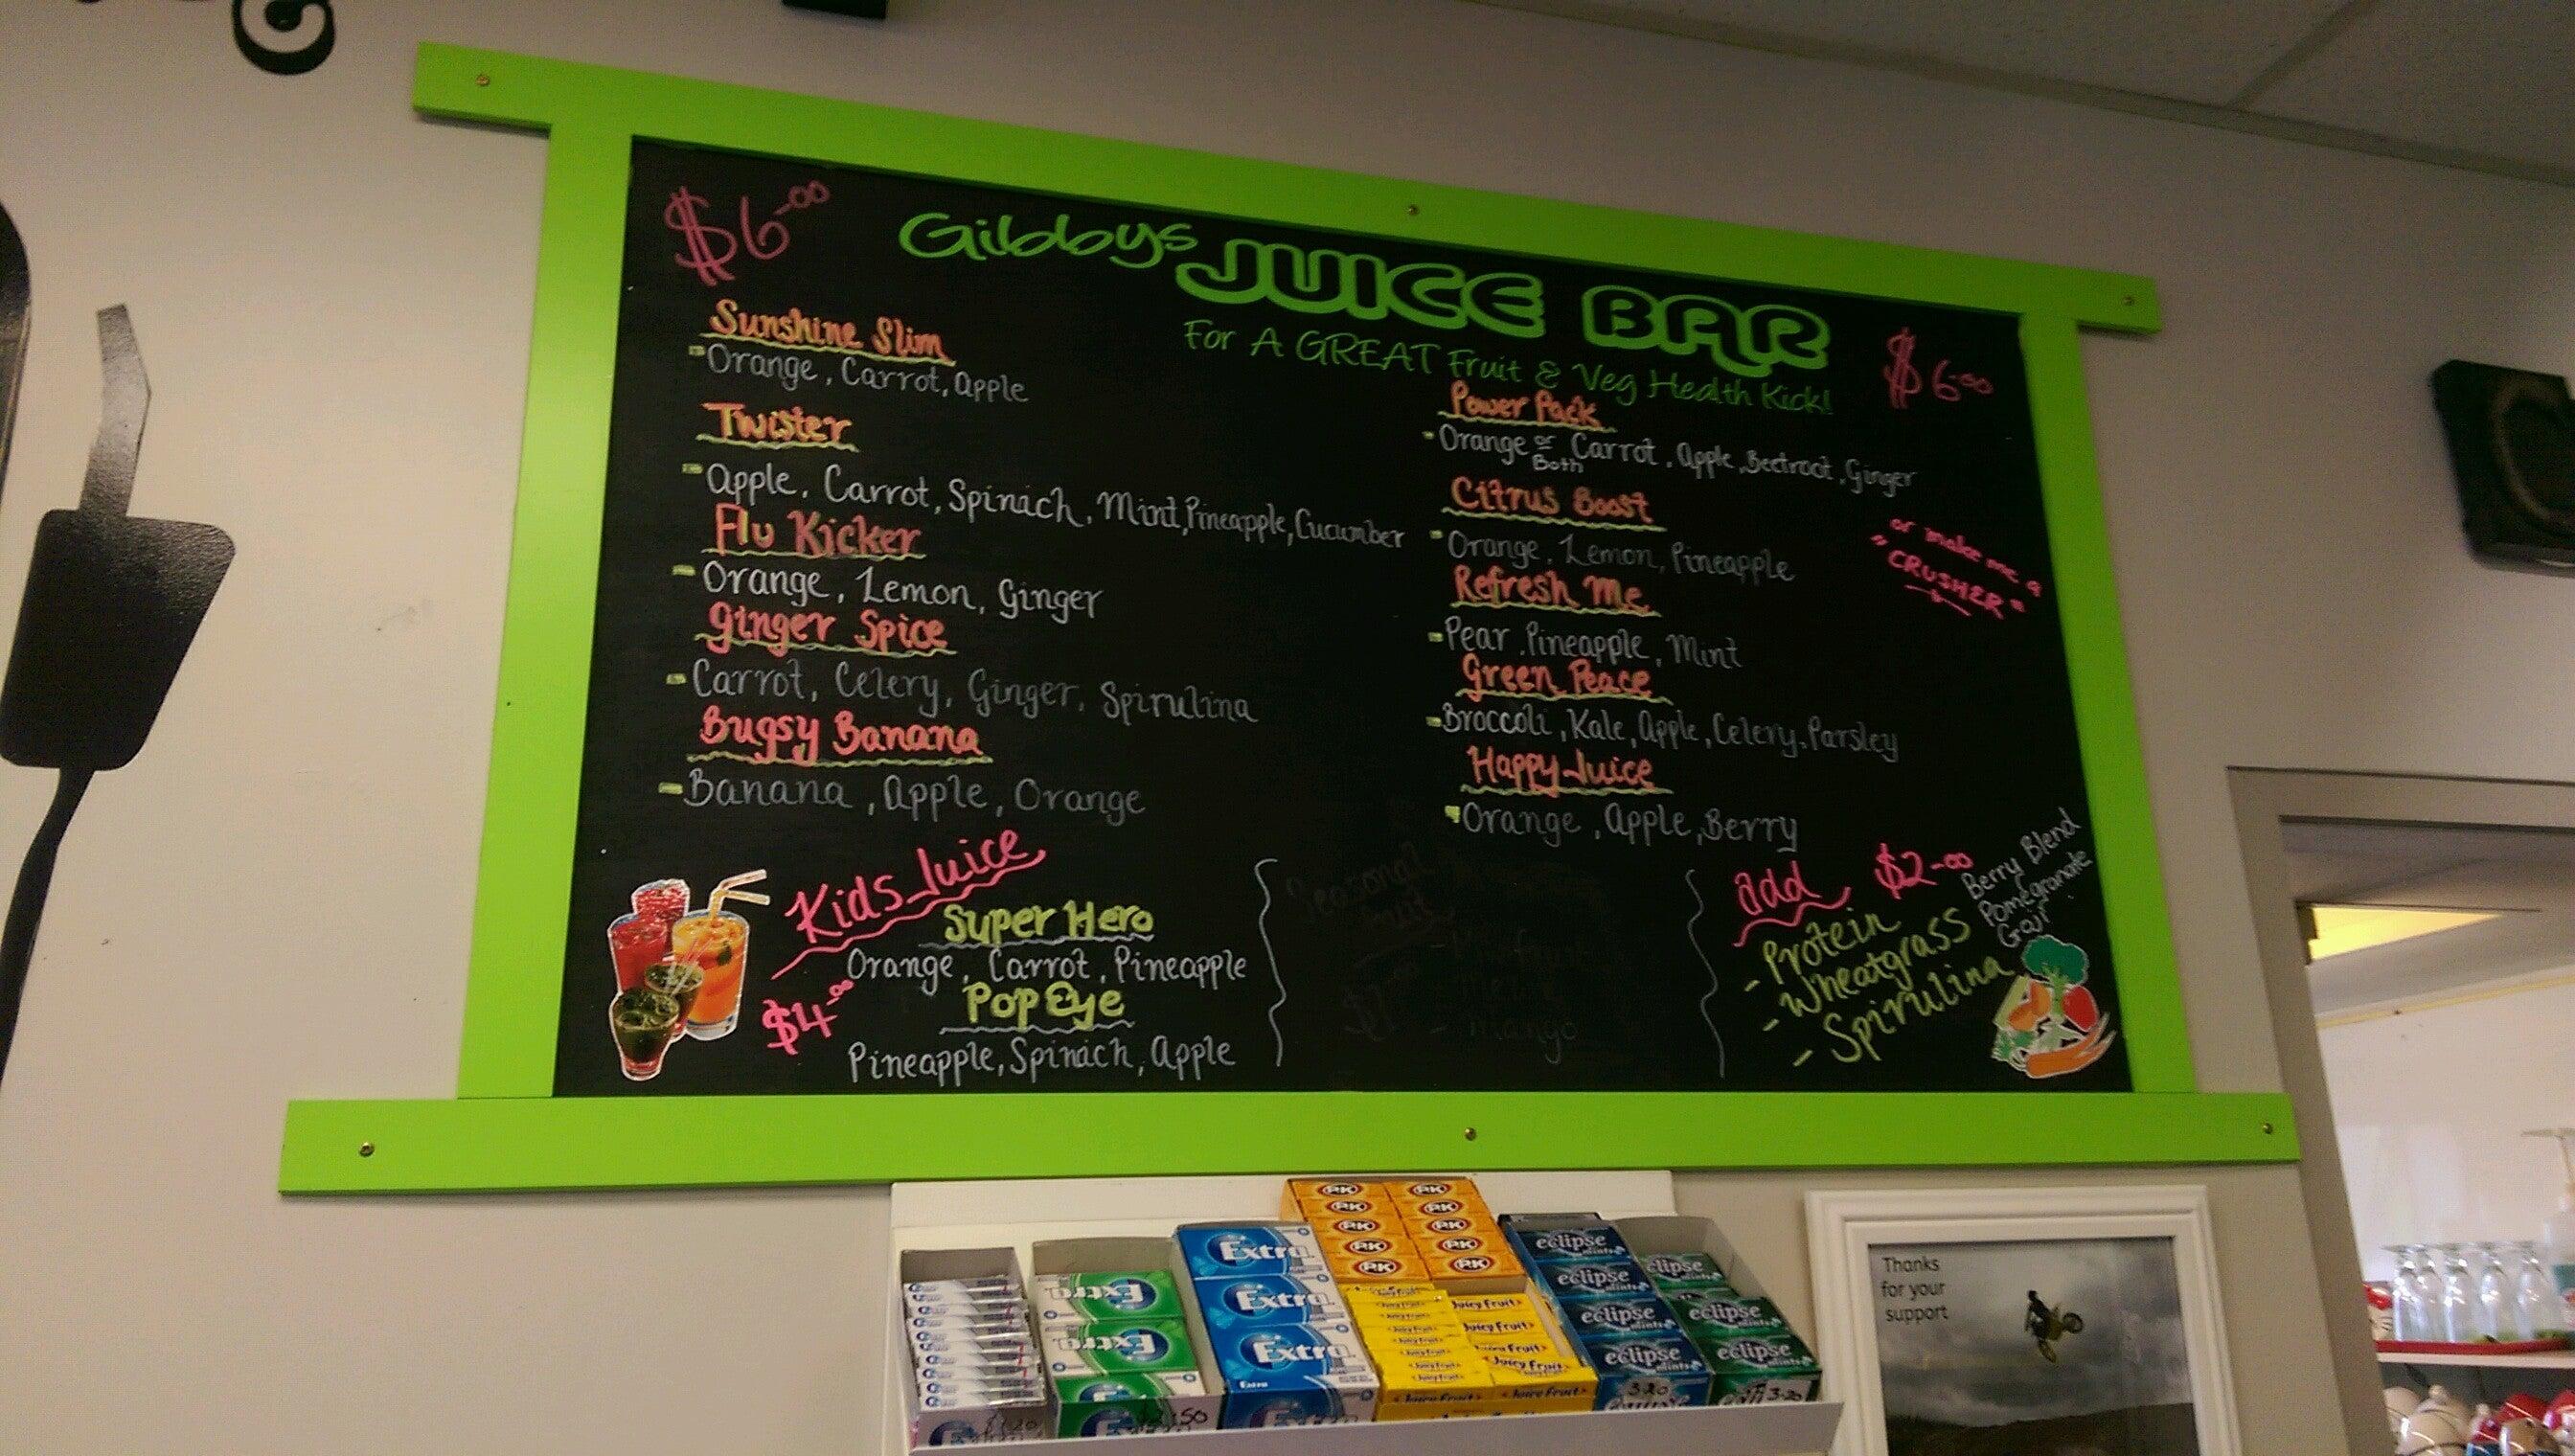 $6-00
Gibbys JUICE BAR
For A GREAT Fruit & Veg Health Kick!
$6-00
Sunshine Slim
-Orange, Carrot, apple
Twister
-apple, Carrot, Spinach, Mint, Pineapple, Cucumber
Flu Kicker
-Orange, Lemon, Ginger
Ginger Spice
-Carrot, Celery, Ginger, Spirulina
Bugsy Banana
-Banana, apple, Orange
Power Pack
-Orange or Both Carrot, apple, Beetroot, Ginger
Citrus Boost
-Orange, Lemon, Pineapple
Refresh Me
-Pear, Pineapple, Mint
Green Peace
-Broccoli, Kale, apple, Celery, Parsley
Happy Juice
-Orange, apple, Berry
or make me a
"CRUSHER"
Kids Juice
$4-00
Super Hero
Orange, Carrot, Pineapple
Pop Eye
Pineapple, Spinach, apple
Seasonal
Fruit
- mango
add $2-00
- Protein
- Wheatgrass
- Spirulina
Berry Blend
Pomegranate
Goji
Extra
Extra
Extra
Extra
Extra
Extra
P.K
P.K
P.K
P.K
P.K
P.K
P.K
P.K
P.K
P.K
Juicy Fruit
Juicy Fruit
Juicy Fruit
Juicy Fruit
Juicy Fruit
eclipse mints
eclipse mints
eclipse mints
eclipse mints
3-20
eclipse
eclipse
eclipse
3-20
$2.50
Thanks
for your
support